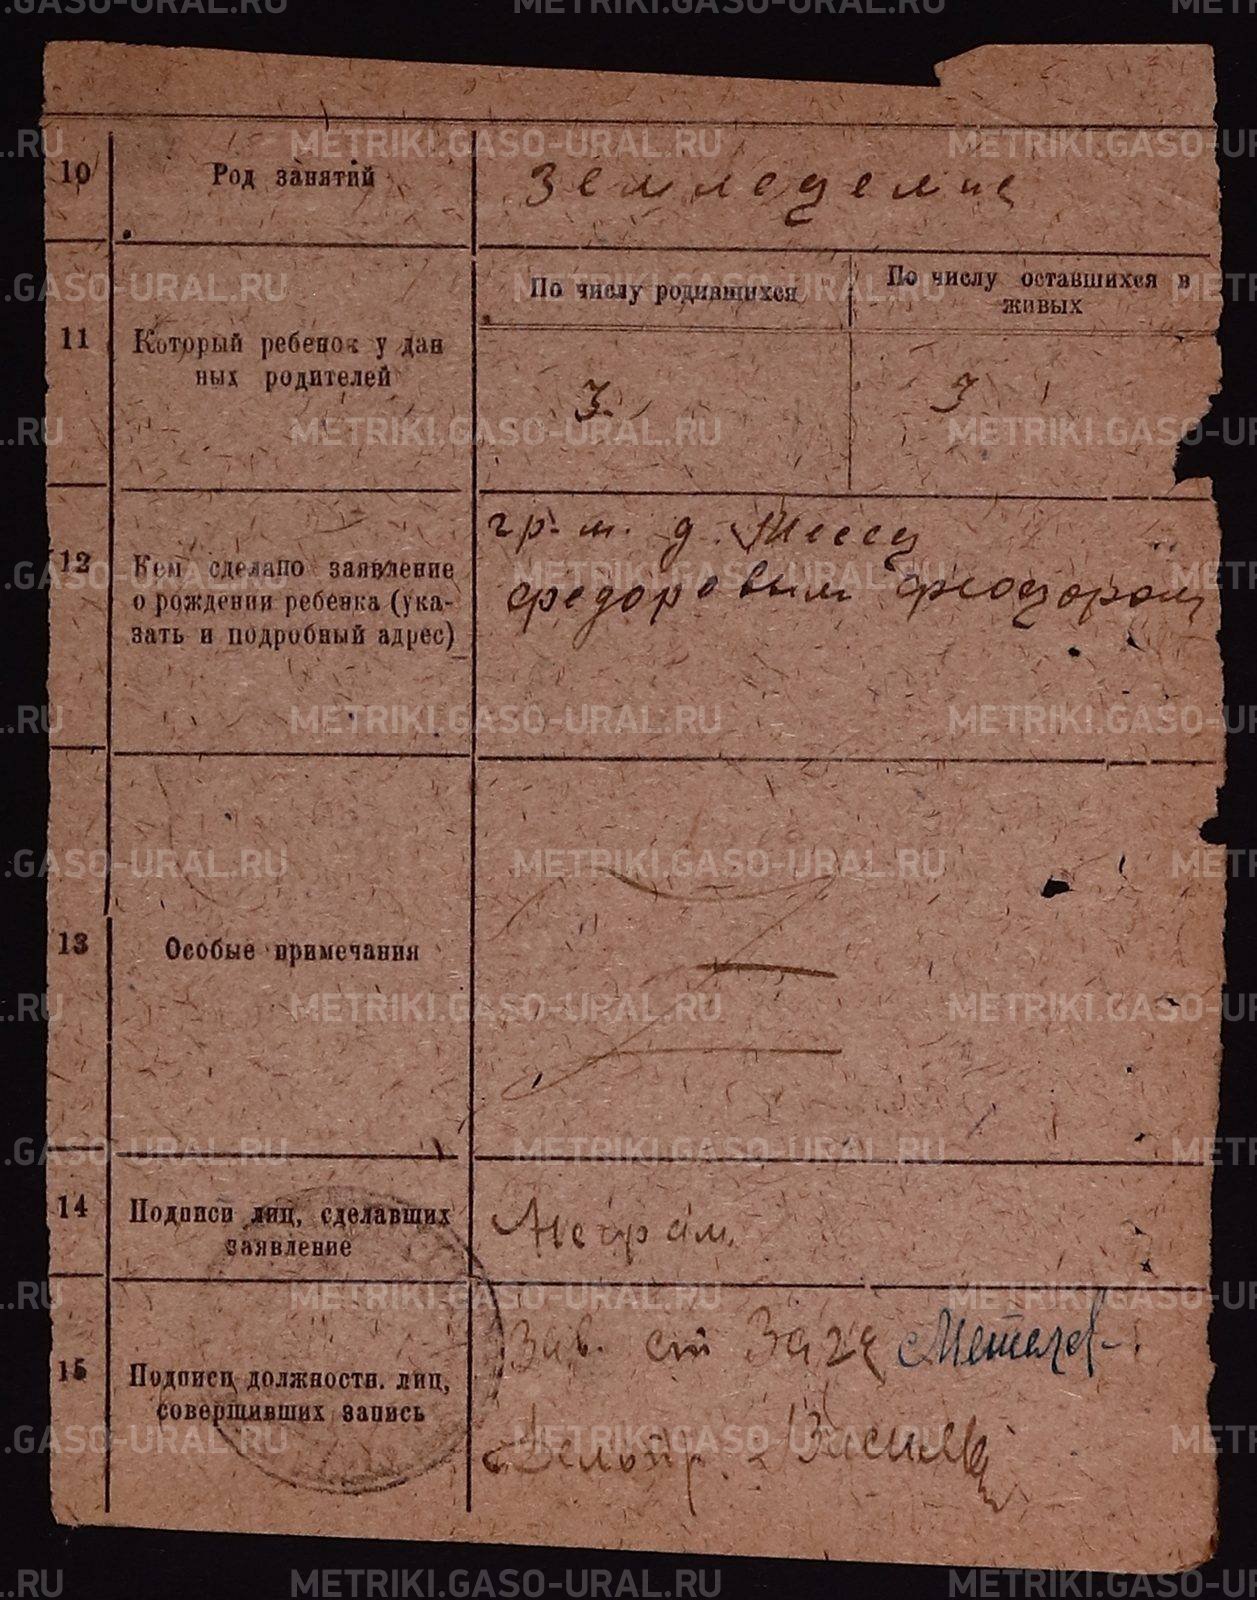 10
Род занятий
Земледелие
11
Который ребенок у дан
ных родителей
По числу родившихся
По числу оставшихся в
живых
3.
3
12
Кем сделано заявление
о рождении ребенка (ука-
зать и подробный адрес)
гр. м. д.
Федоровым Фиодором
13
Особые примечания
14
Подписи лиц, сделавших
заявление
15
Подписи должностн. лиц,
совершивших запись
Зав. ст Загс
METRIKI.GASO-URAL.RU